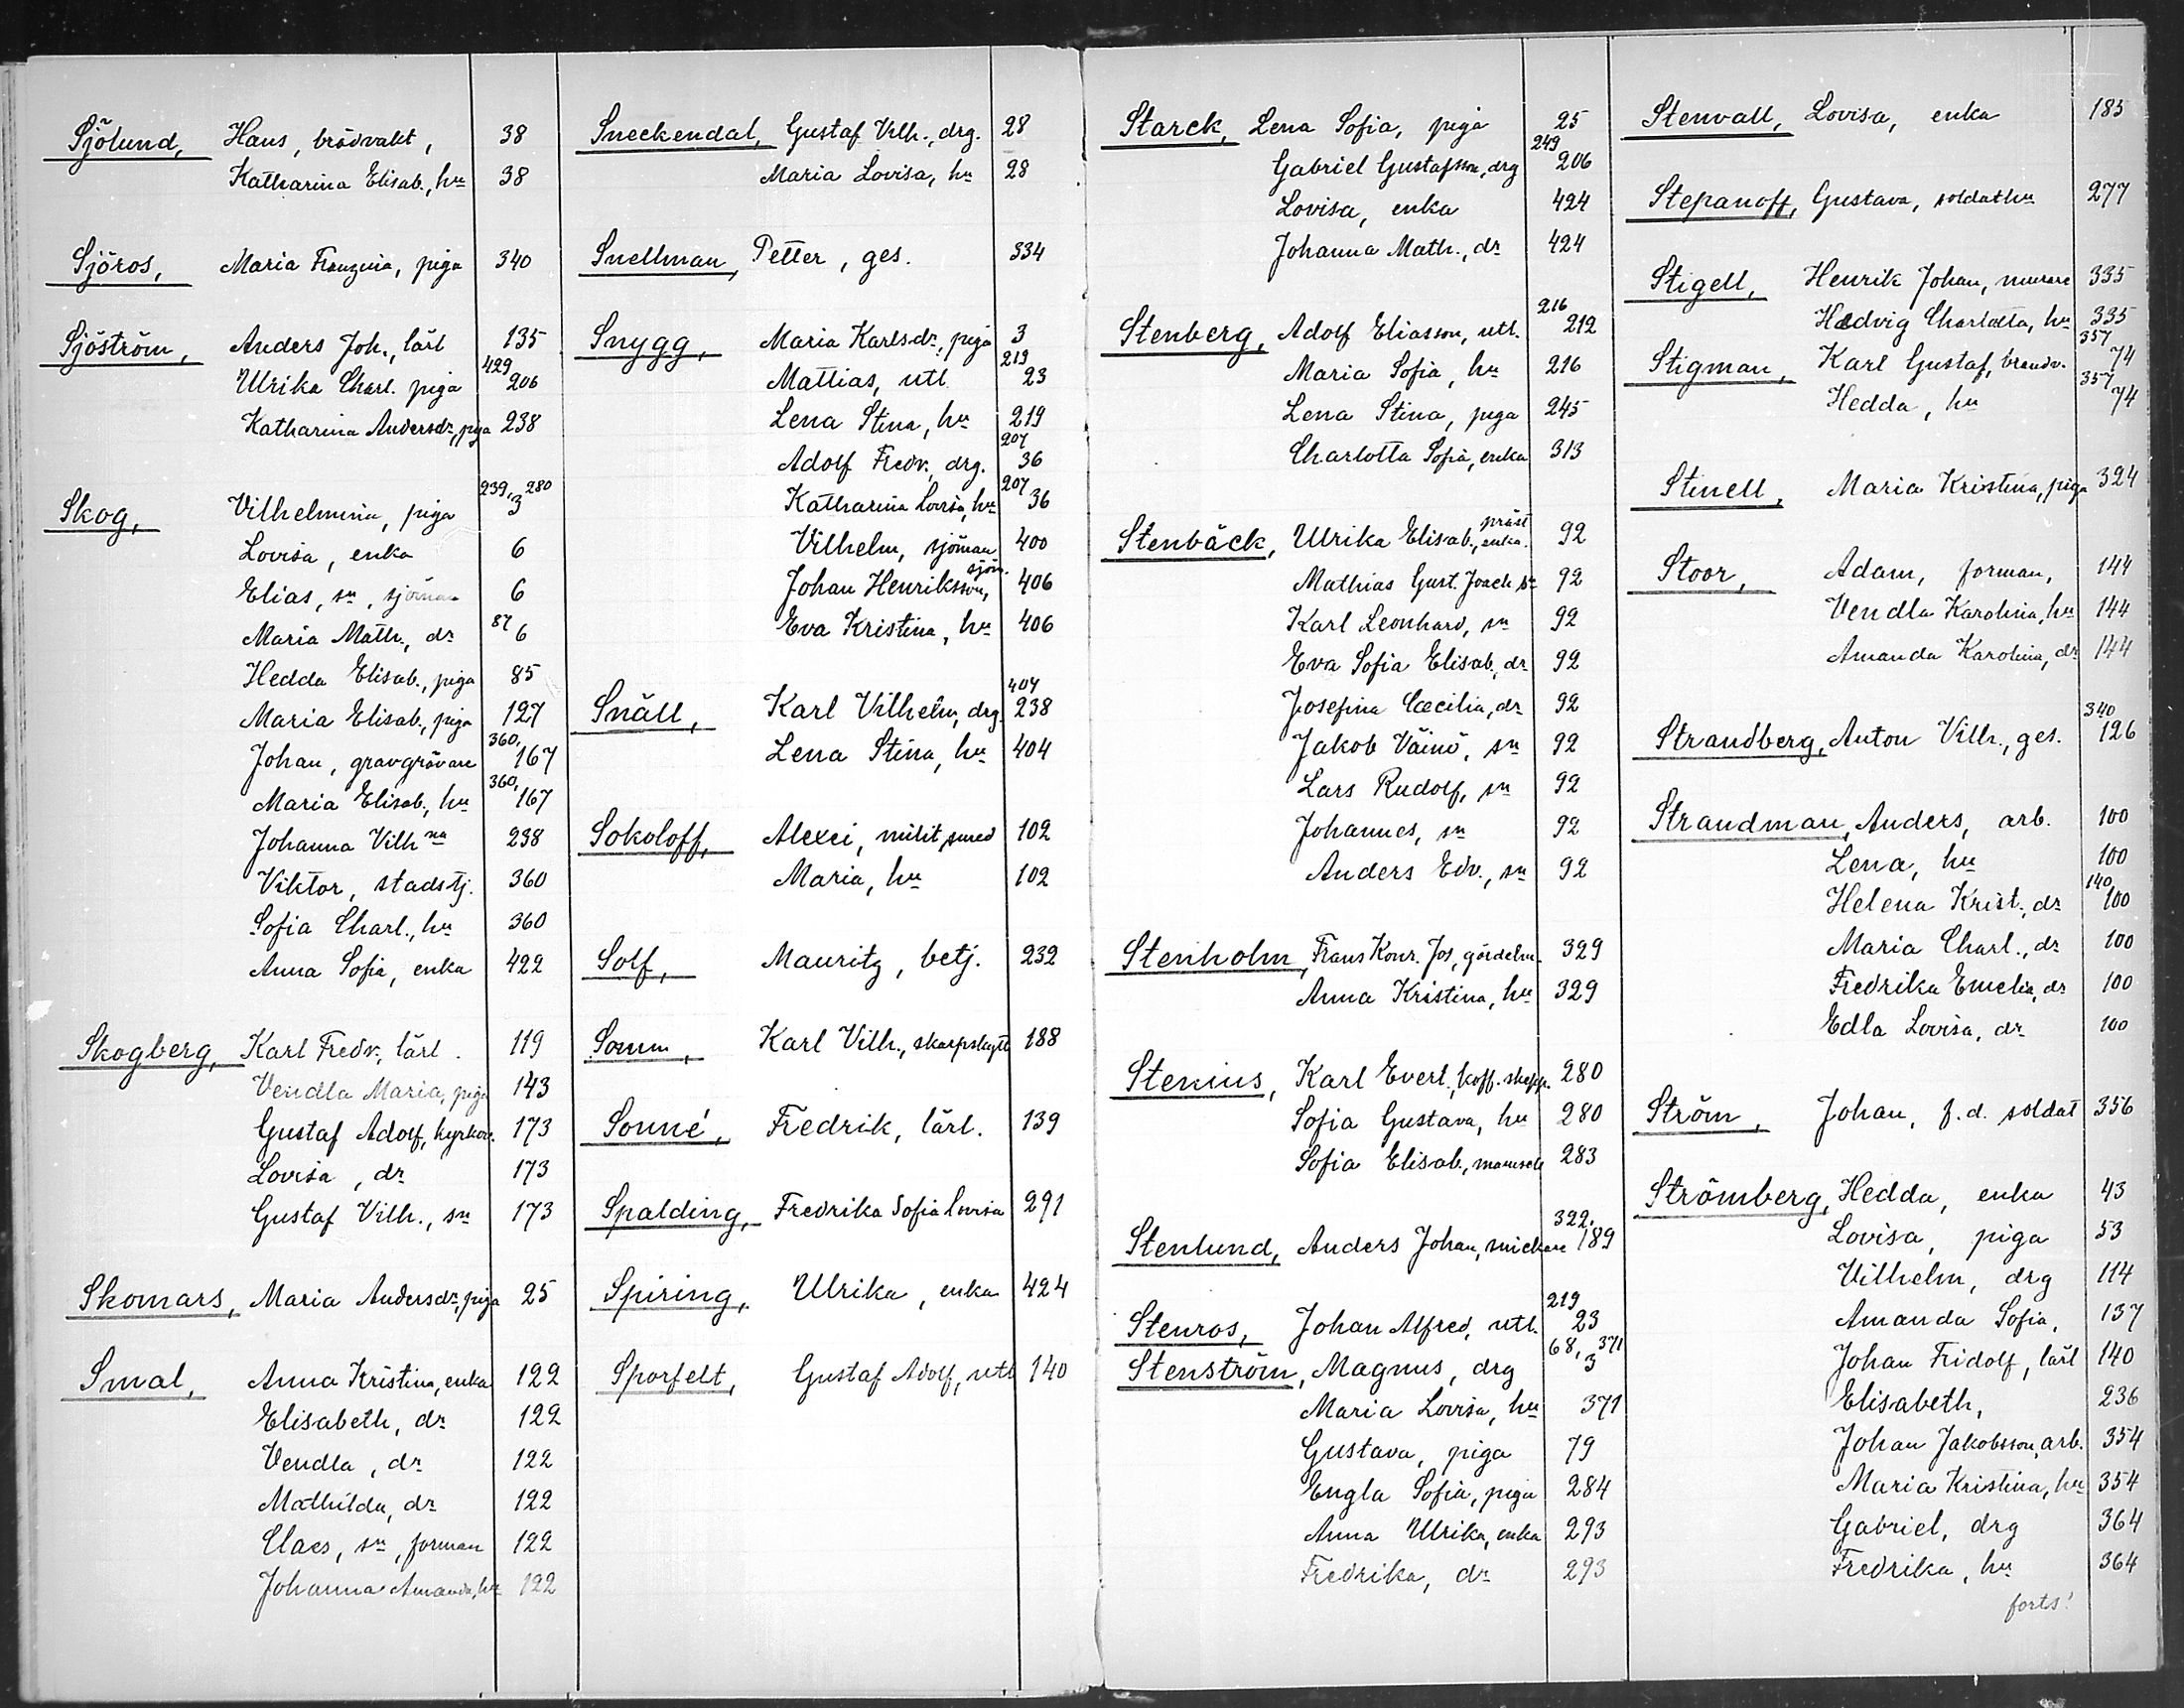 Sjölund, Hans, brödvakt, 38
Katharina Elisab., hu 38
Sjöros, Maria Franzina, piga 340
Sjöström, Anders Joh., lärl 135
Ulrika Charl. piga 429 206
Katharina Andersdr, piga 238
Skog, Vilhelmina, piga 239, 3 280
Lovisa, enka 6
Elias, sn, sjöman 6
Maria Math., dr 87 6
Hedda Elisab., piga 85
Maria Elisab., piga 127
Johan, gravgrävare 360, 167
Maria Elisab., hu 360, 167
Johanna Vilhna 238
Viktor, stadstj. 360
Sofia Charl., hu 360
Anna Sofia, enka 422
Skogberg, Karl Fredr., lärl. 119
Vendla Maria, piga 143
Gustaf Adolf, kyrkov. 173
Lovisa, dr 173
Gustaf Vilh., sn 173
Skomars, Maria Andersdr, piga 25
Smal, Anna Kristina, enka 122
Elisabeth, dr 122
Vendla, dr 122
Mathilda, dr 122
Claes, sn, forman 122
Johanna Amanda, hu 122
Sneckendal, Gustaf Vilh., drg. 28
Maria Lovisa, hu 28
Snellman, Petter, ges. 334
Snygg, Maria Karlsdr, piga 3
Mattias, utl. 219 23
Lena Stina, hu 219
Adolf Fredr., drg. 207 36
Katharina Lovisa, hu 207 36
Vilhelm, sjöman 400
Johan Henriksson, sjöm. 406
Eva Kristina, hu 406
Snäll, Karl Vilhelm, drg. 404 238
Lena Stina, hu 404
Sokoloff, Alexei, milit. smed 102
Maria, hu 102
Solf, Mauritz, betj. 232
Somm, Karl Vilh., skarpskytt 188
Sonné, Fredrik, lärl. 139
Spalding, Fredrika Sofia Lovisa 291
Spiring, Ulrika, enka 424
Sporfelt, Gustaf Adolf, utl 140
Starck, Lena Sofia, piga 25
Gabriel Gustafsson, drg 249 206
Lovisa, enka 424
Johanna Math., dr 424
Stenberg, Adolf Eliasson, utl. 216 212
Maria Sofia, hu 216
Lena Stina, piga 245
Charlotta Sofia, enka 313
Stenbäck, Ulrika Elisab., präst enka. 92
Mathias Gust. Joach sn 92
Karl Leonhard, sn 92
Eva Sofia Elisab., dr 92
Josefina Cæcilia, dr 92
Jakob Väinö, sn 92
Lars Rudolf, sn 92
Johannes, sn 92
Anders Edv., sn 92
Stenholm, Frans Konr. Jos, gördelm. 329
Anna Kristina, hu 329
Stenius, Karl Evert, koff. skepp. 280
Sofia Gustava, hu 280
Sofia Elisab., mamsell 283
Stenlund, Anders Johan, snickare 322, 189
Stenros, Johan Alfred, utl. 219 23
Stenström, Magnus, drg 68, 3 371
Maria Lovisa, hu 371
Gustava, piga 79
Engla Sofia, piga 284
Anna Ulrika, enka 293
Fredrika, dr 293
Stenvall, Lovisa, enka 185
Stepanoff, Gustava, soldathu 277
Stigell, Henrik Johan, murare 335
Hædvig Charlotta, hu 335
Stigman, Karl Gustaf, brandv. 357 74
Hedda, hu 357 74
Stinell, Maria Kristina, piga 324
Stoor, Adam, forman, 144
Vendla Karolina, hu 144
Amanda Karolina, dr 144
Strandberg, Anton Vilh., ges. 340 126
Strandman, Anders, arb. 100
Lena, hu 100
Helena Krist., dr 140, 100
Maria Charl., dr 100
Fredrika Emelia, dr 100
Edla Lovisa, dr 100
Ström, Johan, f.d. soldat 356
Strömberg, Hedda, enka 43
Lovisa, piga 53
Vilhelm, drg 114
Amanda Sofia, 137
Johan Fridolf, lärl 140
Elisabeth, 236
Johan Jakobsson, arb. 354
Maria Kristina, hu 354
Gabriel, drg 364
Fredrika, hu 364
forts!